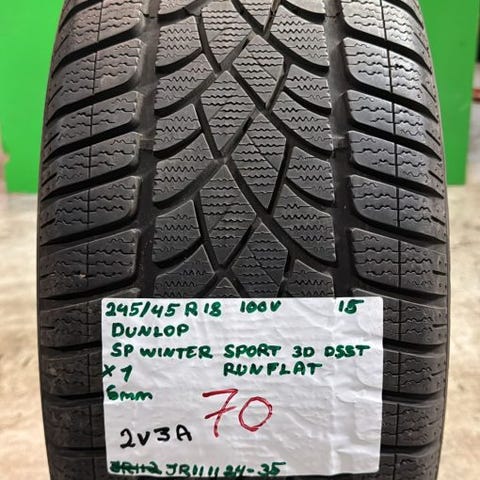 245/45 R18 100V 15
DUNLOP
SP WINTER SPORT 3D DSST
X1 RUNFLAT
6mm
70
2V3A
JR1111 24-35